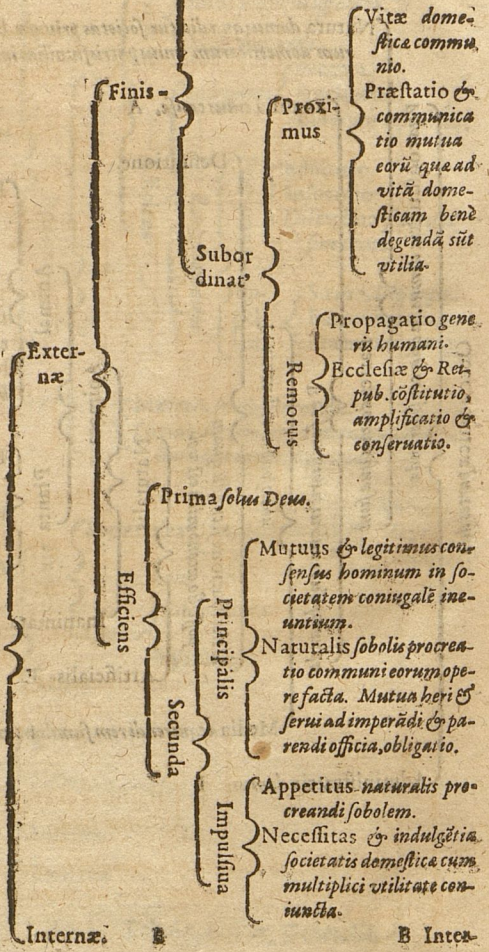 Vitæ dome-
ſticæ commu
nio.
Finis-
Præſtatio &
communica
tio mutua
eorũ quæ ad
vitã dome-
ſticam benè
degendã sũt
vtilia.
Proxi-
mus
Subor
dinat'
Propagatio gene
ris humani.
Eccleſiæ & Rei-
pub. cõſtitutio,
amplificatio &
conſeruatio.
Remotus
Exter-
næ
Prima ſolus Deus.
Efficiens
Mutuus & legitimus con-
ſenſus hominum in ſo-
cietatem coniugalẽ ine-
untium.
Naturalis ſobolis procrea-
tio communi eorum ope-
re facta. Mutua heri &
ſerui ad imperãdi & pa-
rendi officia, obligatio.
Principalis
Secunda
Appetitus naturalis pro-
creandi ſobolem.
Neceſſitas & indulgẽtia
ſocietatis domeſticæ cum
multiplici vtilitate con-
iuncta.
Impulſiua
Internæ.
B
B Inter-